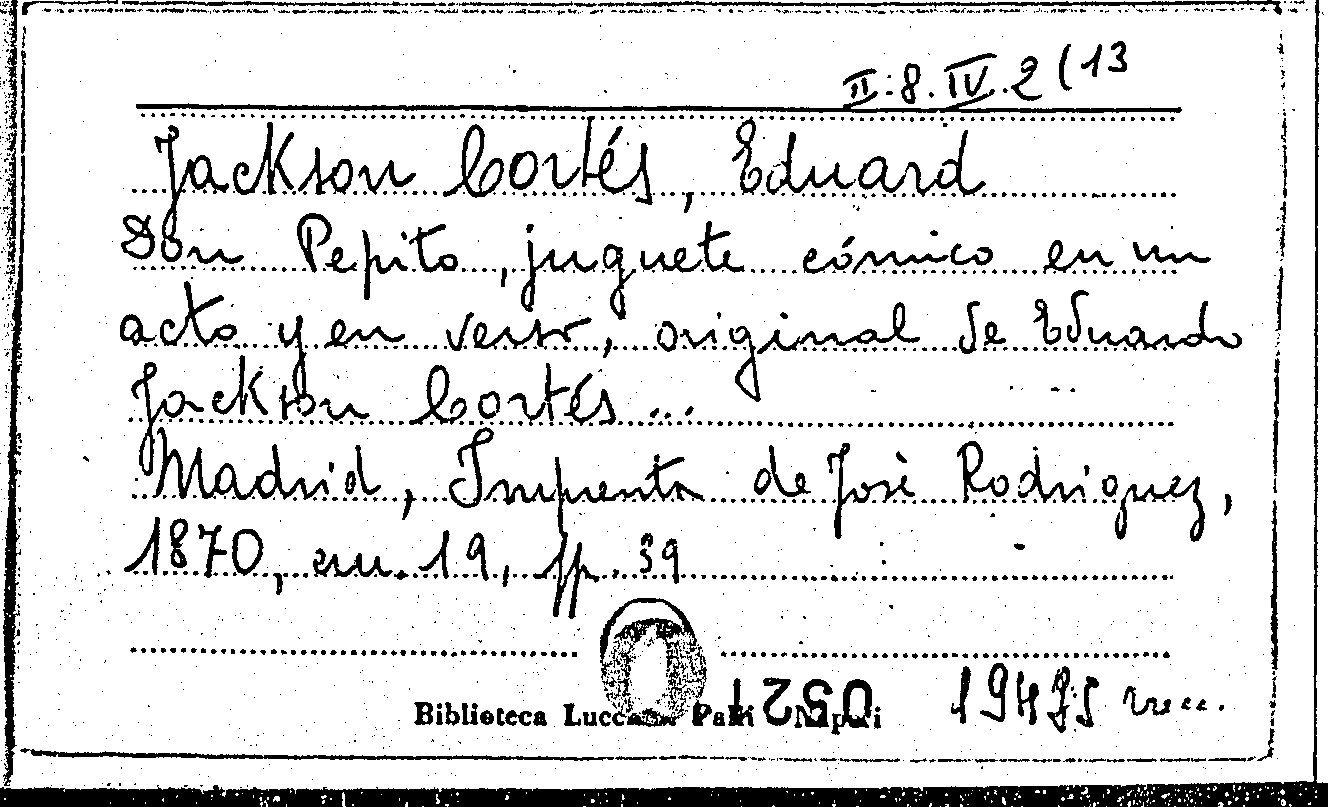 II.8.IV.2(13
Jackson Cortés, Eduard
Don Pepito, juguete cómico en un
acto y en verso, original de Eduardo
Jackson Cortés ...
Madrid, Imprenta de José Rodriguez,
1870, cm. 19, pp. 39
0521
Biblioteca Lucchesi Palli Napoli